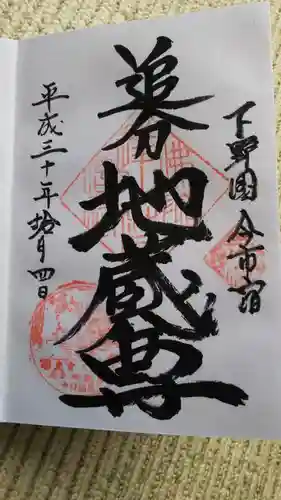 下野国 今市宿
追分地蔵尊
平成三十年拾月四日